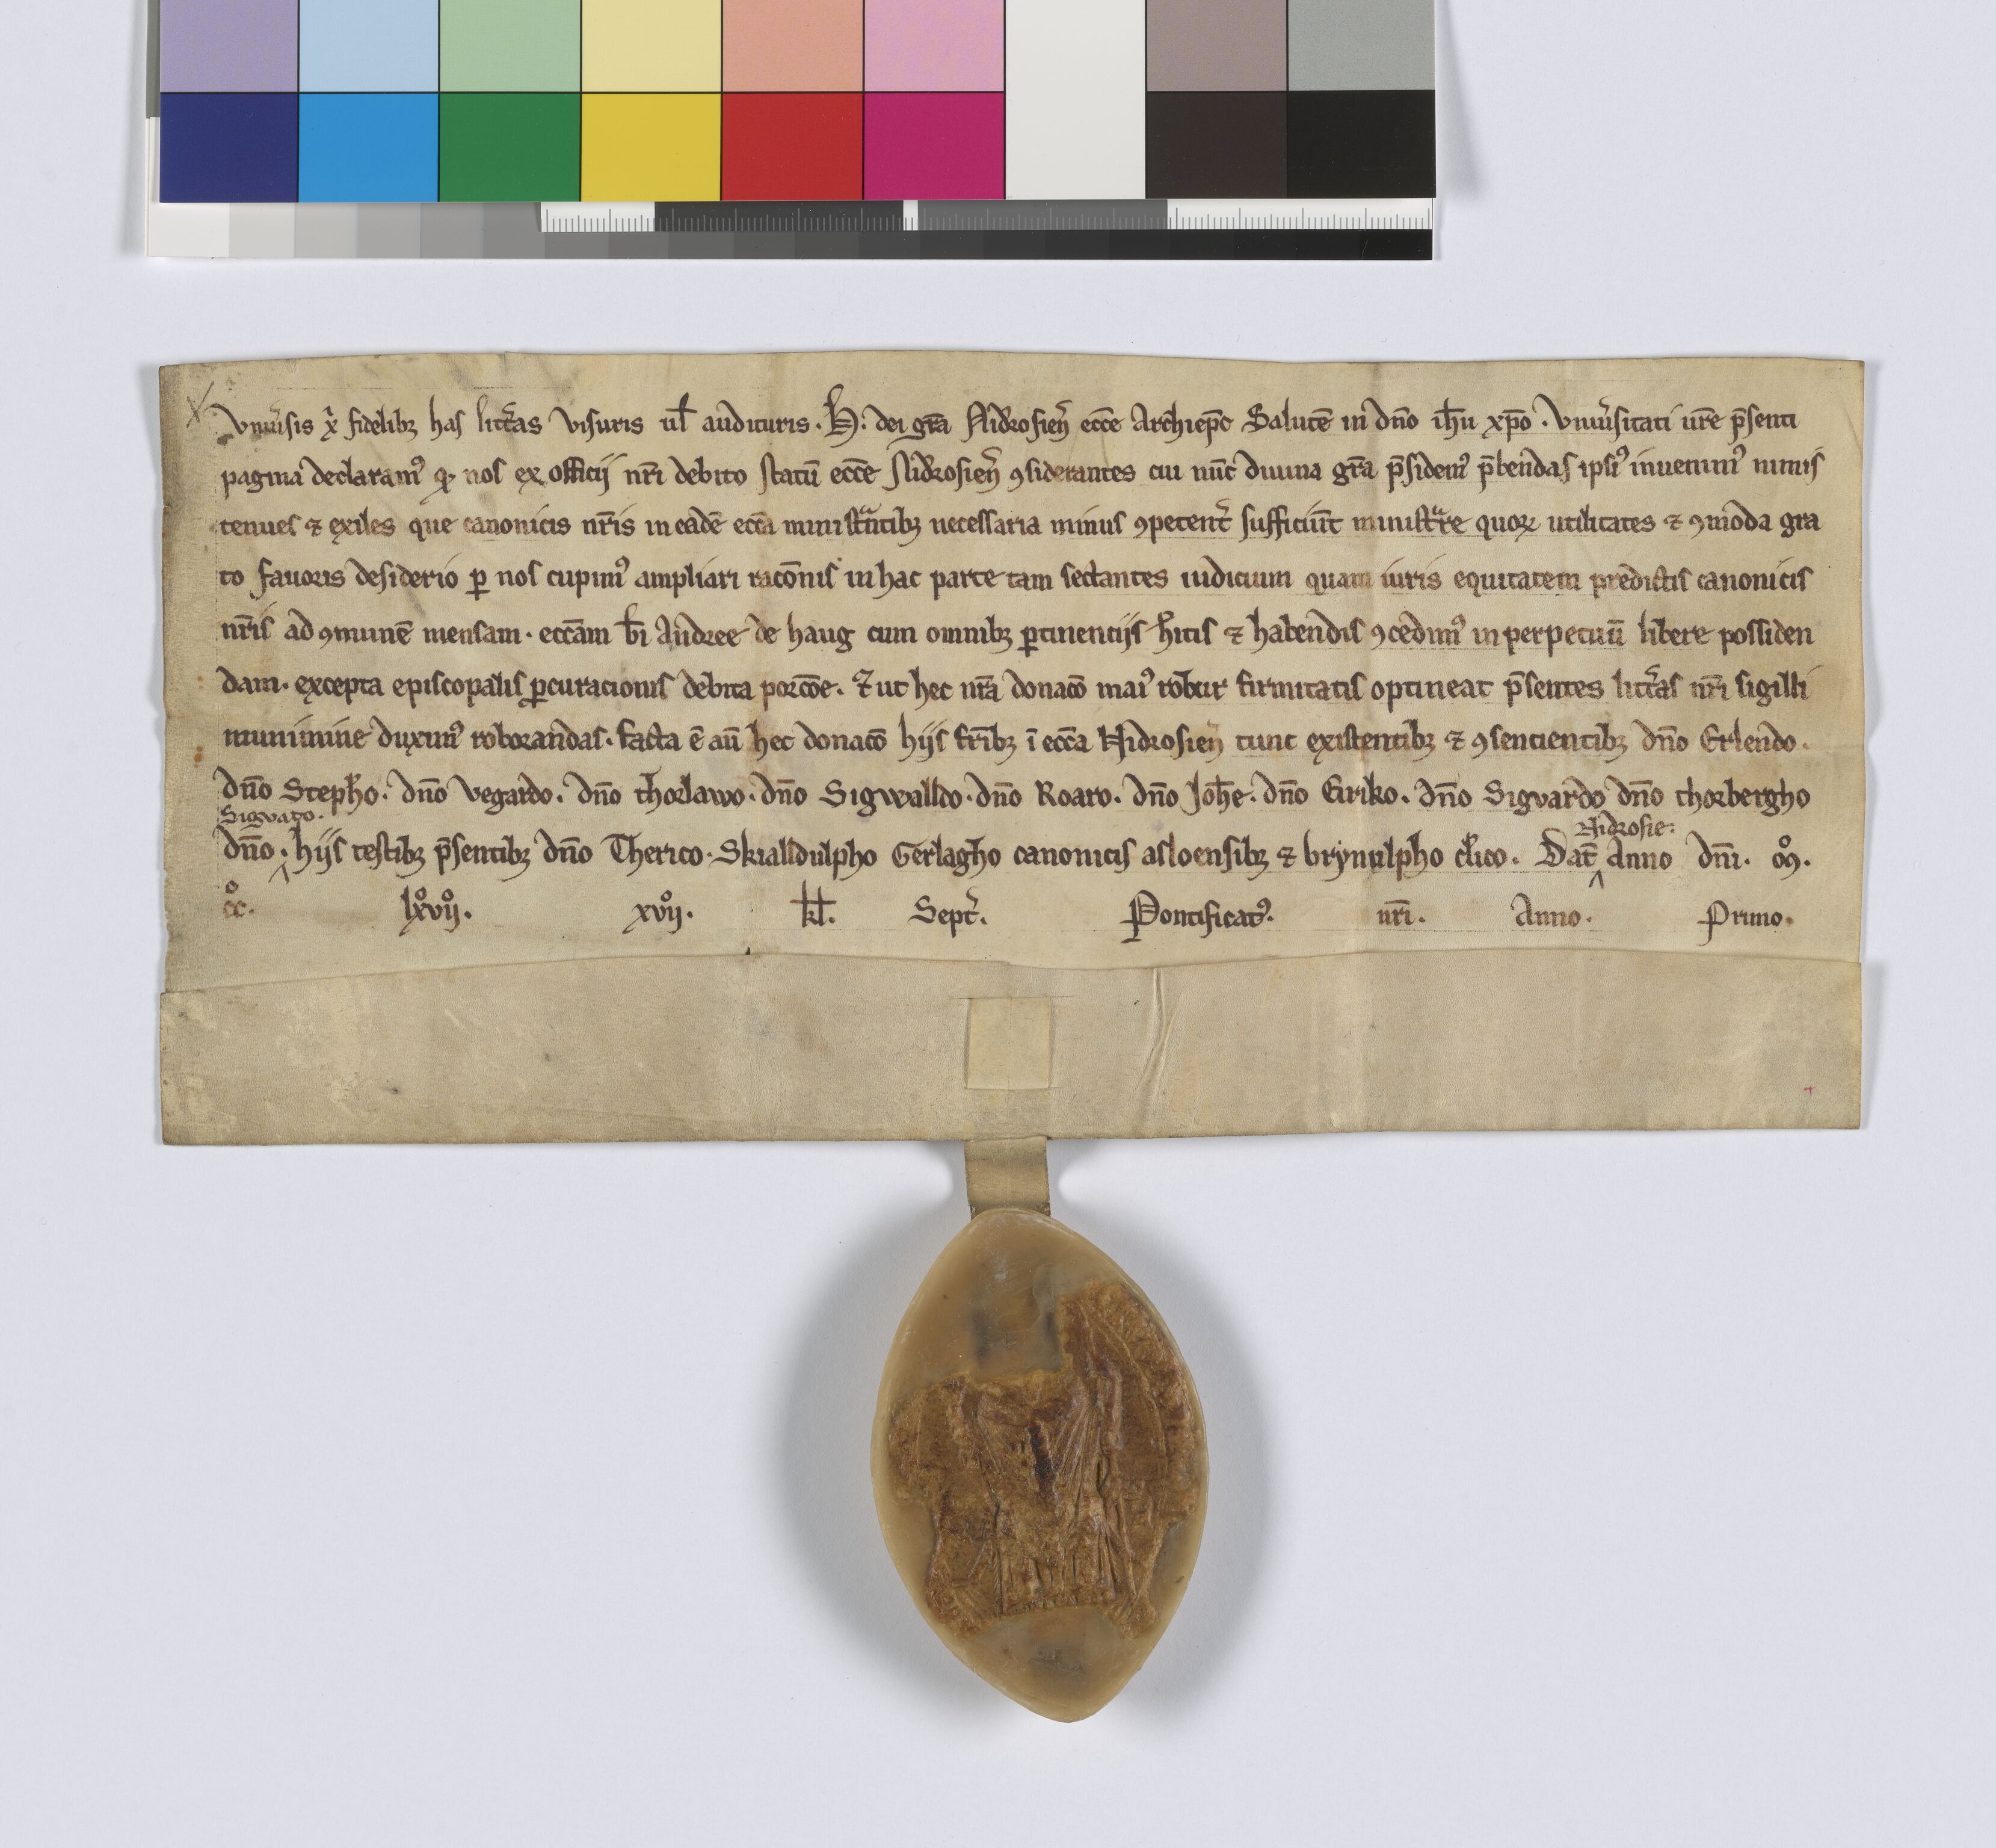 Vniu͛sis x̄ fidelibꝫ has litt͛as visuris ul̄ audituris. H. dei gr̄a Nidrosien̄ ecc̄e Archiep̄c Salutē in dn̄o ih̄u xp̄o. Vniu͛sitati ur̄e p̄senti
pagina declaramꝰ ꝙ nos ex officij nr̄i debito statū ecc̄e Nidrosien̄ ꝯsiderantes cui nūc diuina gr̄a p̄sidemꝰ p̄bendas ipsiꝰ inuenimꝰ nimis
tenues ⁊ exiles que canonicis nr̄is in eadē ecc̄a ministᷓntibꝫ necessaria minus ꝯpetent͛ sufficiūt ministᷓre quoꝝ utilitates ⁊ ꝯmoda gra
to fauoris desiderio ꝑ nos cupimꝰ ampliari racōnis in hac parte tam sectantes iudicium quam iuris equitatem predictis canonicis
nr̄is ad ꝯmunē mensam. ecc̄am b̄i Andree de haug cum omnibꝫ ꝑtinentijs h̄itis ⁊ habendis ꝯcedimꝰ in perpetuū libere possiden
dam. excepta episcopalis ꝓcuracionis debita porcōe. ⁊ ut hec nr̄a donacō maiꝰ robur firmitatis optineat p̄sentes litt͛as nr̄i sigilli
munimine duximꝰ roborandas. facta ē aū hec donacō hijs fr̄ibꝫ ī ecc̄a Nidrosien̄ tunc existentibꝫ ⁊ ꝯsencientibꝫ dn̄o Erlendo.
dn̄o Steph̄o. dn̄o vegardo. dn̄o thorlawo. dn̄o Sigwalldo. dn̄o Roaro. dn̄o Joh̄e. dn̄o Eiriko. dn̄o Sigvardo dn̄o thorbergho
Sigvato.
Nidrosie:
dn̄o. hijs testibꝫ p̄sentibꝫ dn̄o Therico. Skialldulpho Gerlagho canonicis asloensibꝫ ⁊ brynulpho cl̄ico. Dat̄ Anno dn̄i. mͦ.
ccͦ. lxͦvijͦ. xvijͦ. kl̄. Sept͛. Pontificatꝰ. nr̄i. Anno. Primo.